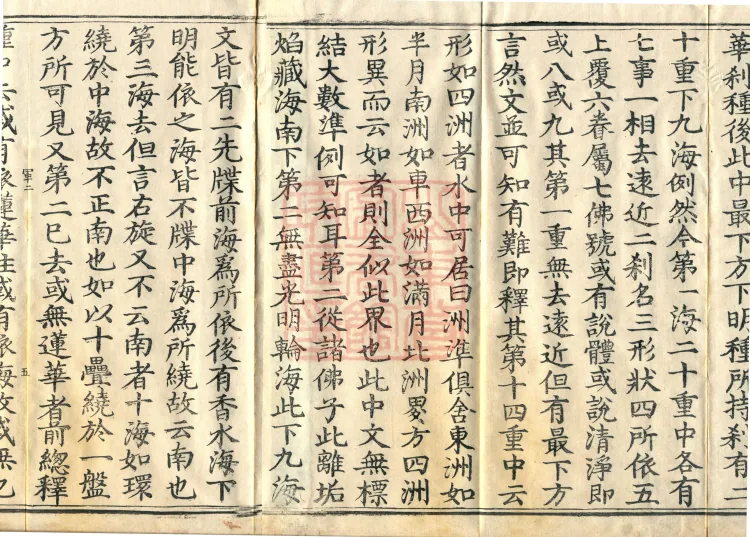 華刹種後此中最下方下明種所持刹有二
十重下九海例然今第一海二十重中各有
七事一相去遠近二刹名三形狀四所依五
上覆六眷屬七佛號或有說體或說清淨即
或八或九其第一重無去遠近但有最下方
言然文並可知有難即釋其第十四重中云
形如四洲者水中可居曰洲準俱舍東洲如
半月南洲如車西洲如滿月北洲畟方四洲
形異而云如者則全似此界也此中文無標
結大數準例可知耳第二從諸佛子此離垢
焰藏海南下第二無盡光明輪海此下九海
文皆有二先牒前海爲所依後有香水海下
明能依之海皆不牒中海爲所繞故云南也
第三海去但言右旋又不云南者十海如環
繞於中海故不正南也如以十疊繞於一盤
方所可見又第二已去或無蓮華者前總釋
五
重中云或有依蓮華住或有依海故或無已